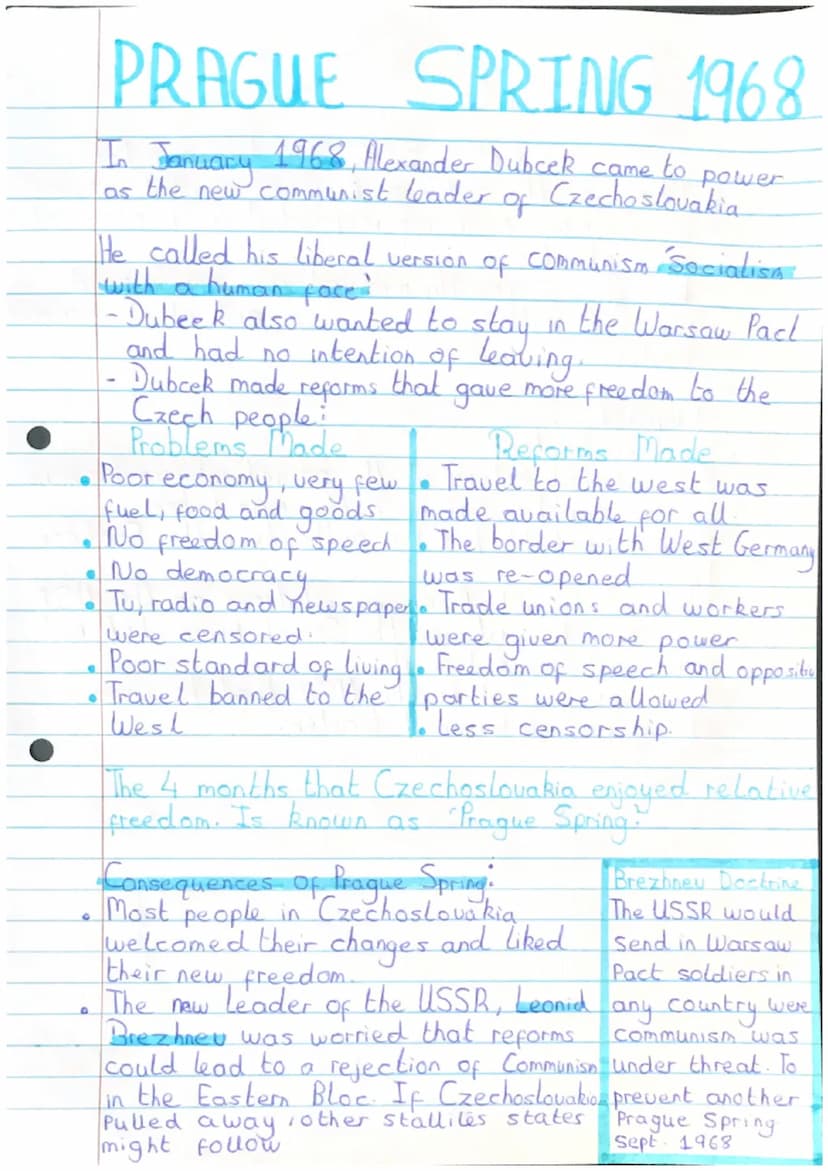 PRAGUE SPRING 1968
In January 1968, Alexander Dubcek came to power
as the new communist leader of Czechoslovakia
He called his liberal version of communism 'Socialism
with a human face'
- Dubeek also wanted to stay in the Warsaw Pact
and had no intention of leaving.
- Dubcek made reforms that gave more freedom to the
Czech people:
Problems Made
• Poor economy, very few
fuel, food and goods
• No freedom of speech
• No democracy
• Tv, radio and newspaper
were censored.
• Poor standard of living
• Travel banned to the
West
Reforms Made
• Travel to the west was
made available for all.
• The border with West Germany
was re-opened
• Trade unions and workers
were given more power
• Freedom of speech and oppositio
parties were allowed
• Less censorship.
The 4 months that Czechoslovakia enjoyed relative
freedom. Is known as 'Prague Spring.'
Consequences of Prague Spring:
• Most people in Czechoslovakia
welcomed their changes and liked
their new freedom.
• The new leader of the USSR, Leonid
Brezhnev was worried that reforms
could lead to a rejection of Communism
in the Eastern Bloc. If Czechoslovakia
pulled away, other stallites states
might follow
Brezhnev Doctrine
The USSR would
send in Warsaw
Pact soldiers in
any country were
communism was
under threat. To
prevent another
Prague Spring
Sept. 1968